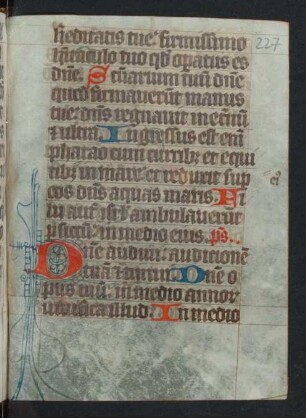 227
hereditatis tue firmissimo
habitaculo tuo qd opatus es
dne. Sctuarium tuum dne
quod firmauerut manus
tue dns regnauit in eternu
et ultra. Ingressus est eni
pharao cum curribz et equi
tibz in mare et reduxit sup
eos dns aquas maris. Fi
lii aut isrl ambulauerut
p siccu in medio eius. ps.
Dne audiui auditionē
tuā et timui. Dne o
pus tuu in medio annor
uiuifica illud. In medio